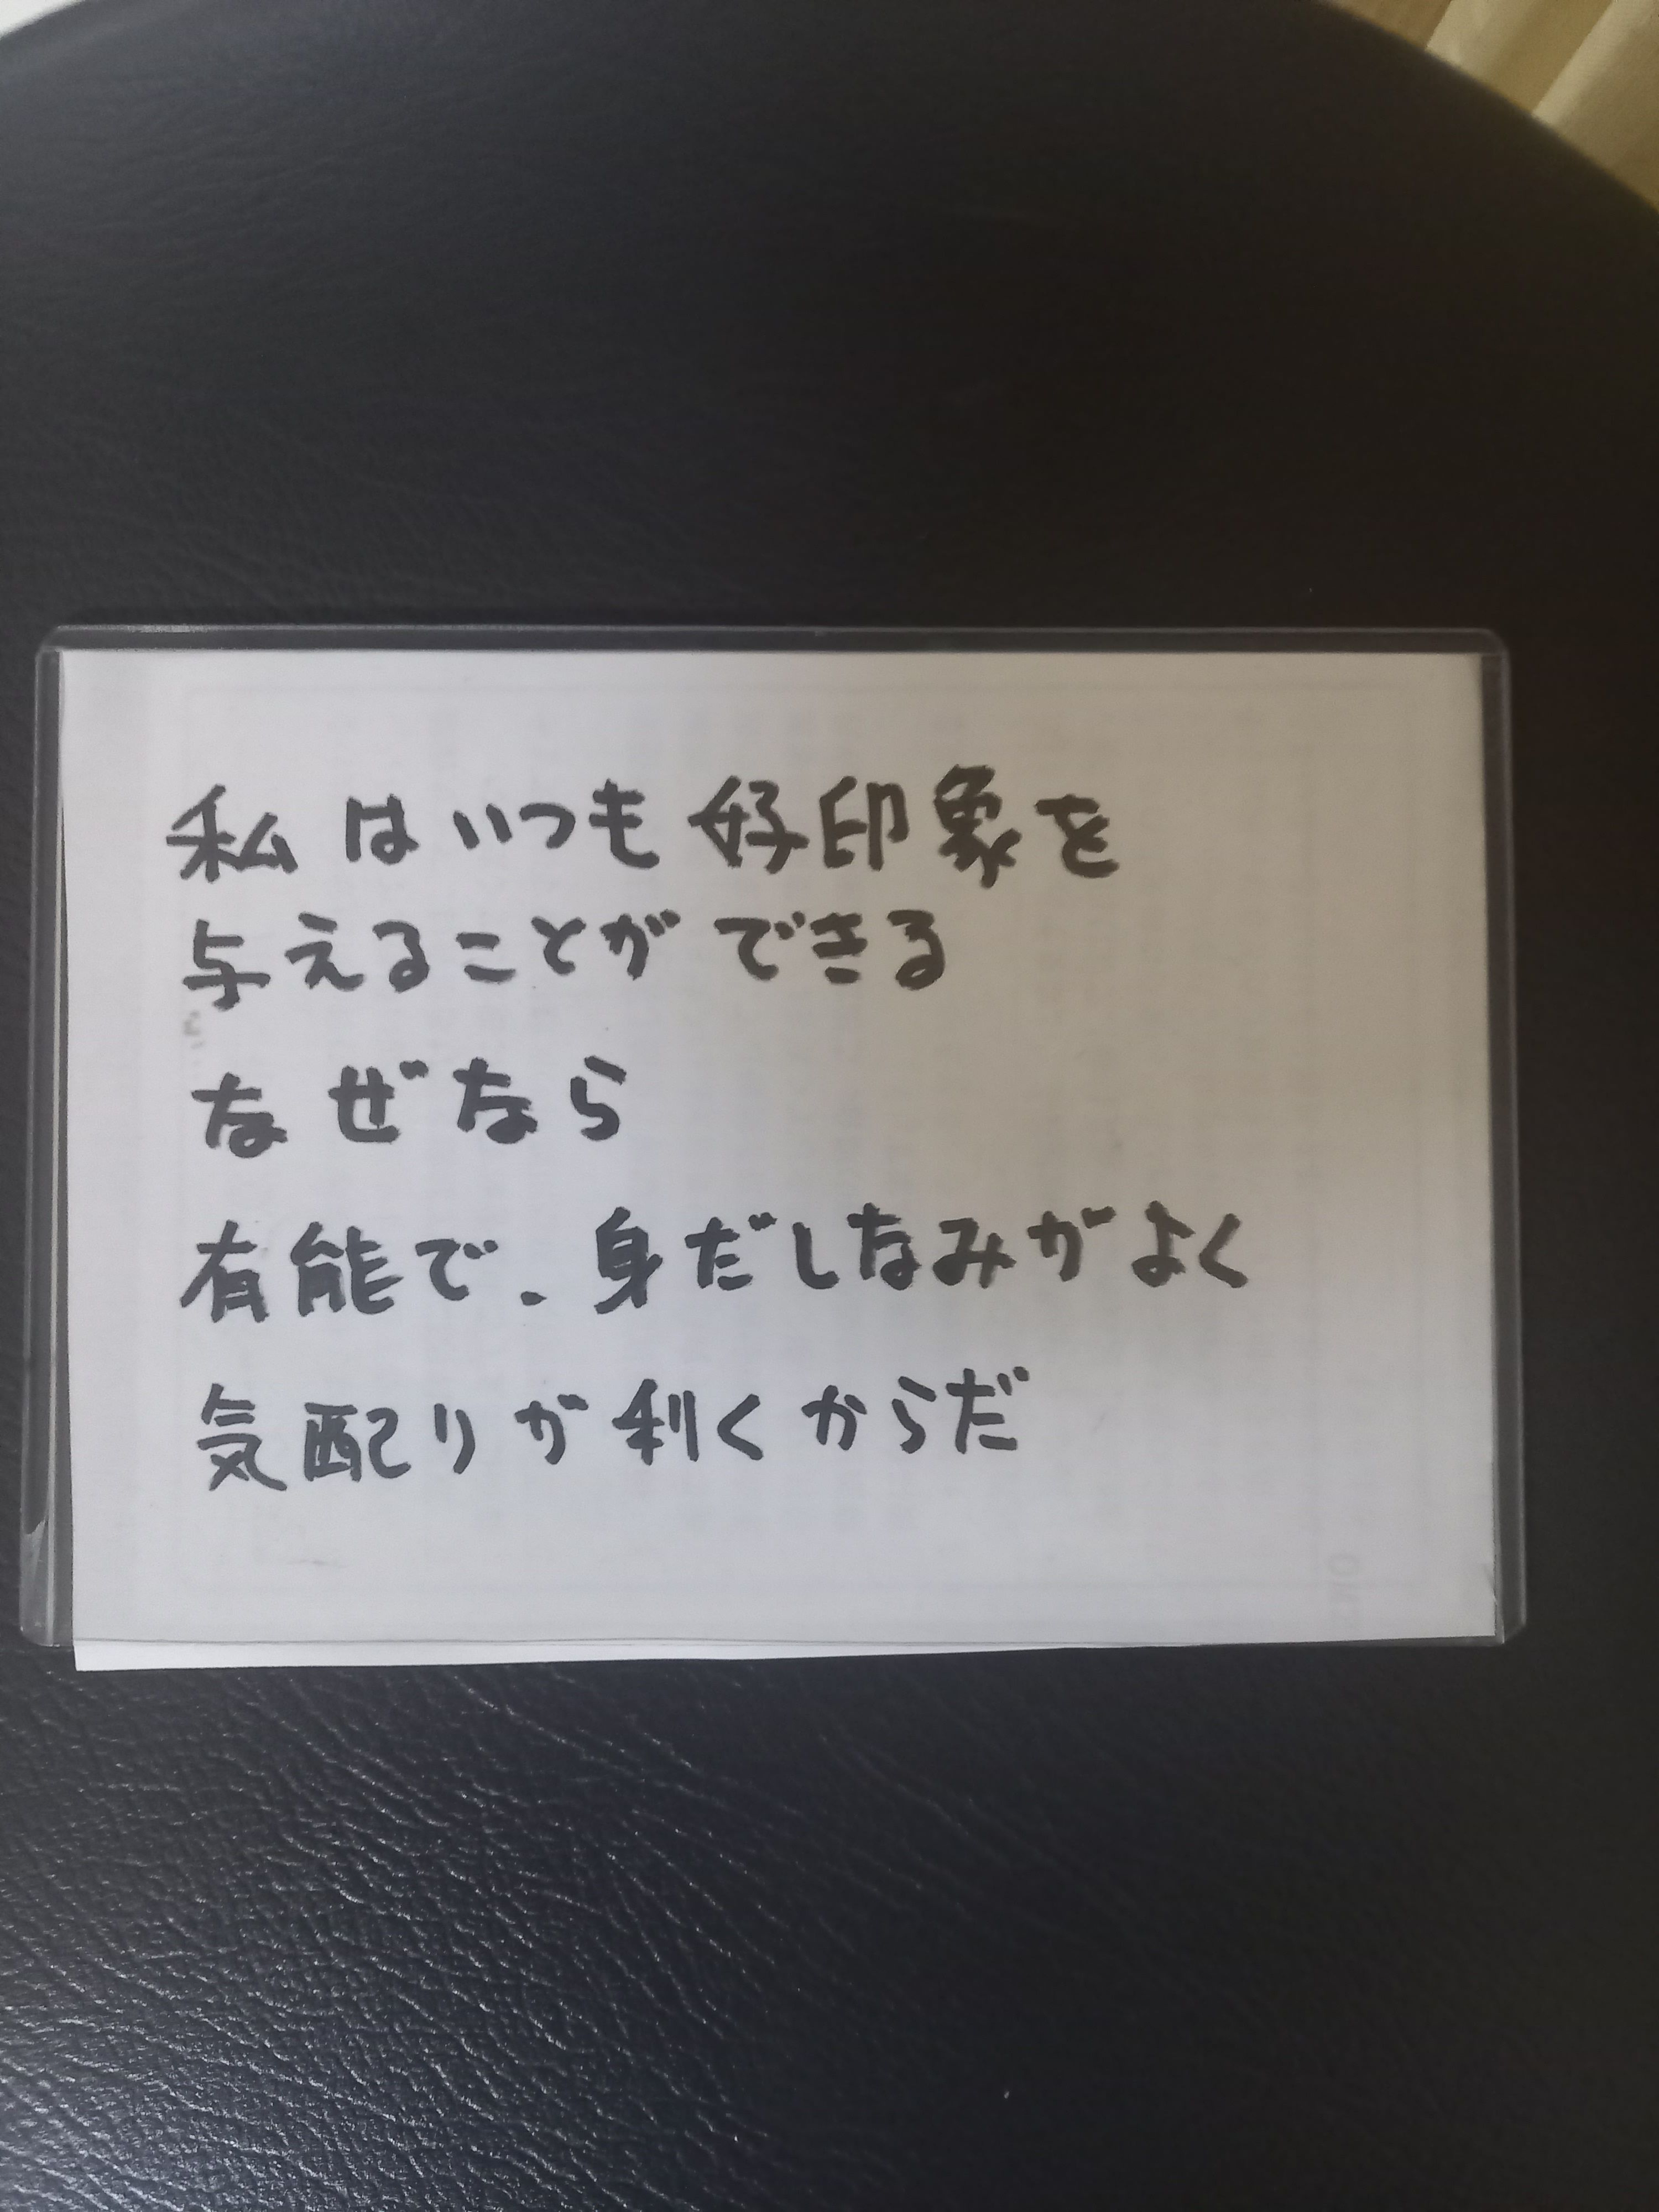 私はいつも好印象を
与えることができる
なぜなら
有能で、身だしなみがよく
気配りが利くからだ